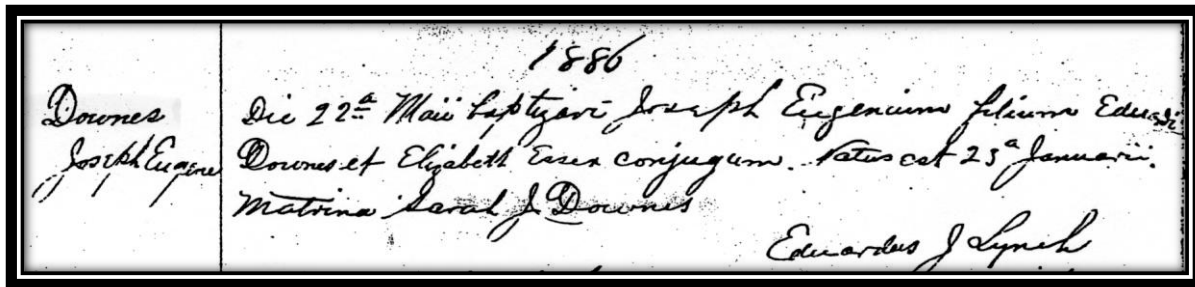 1886
Downes
Joseph Eugene
Die 22ª Maii baptizavi Joseph Eugenium filium Eduardi
Downes et Elizabeth Essex conjugum. Natus est 23ª Januarii.
Matrina Sarah J Downes
Eduardus J Lynch